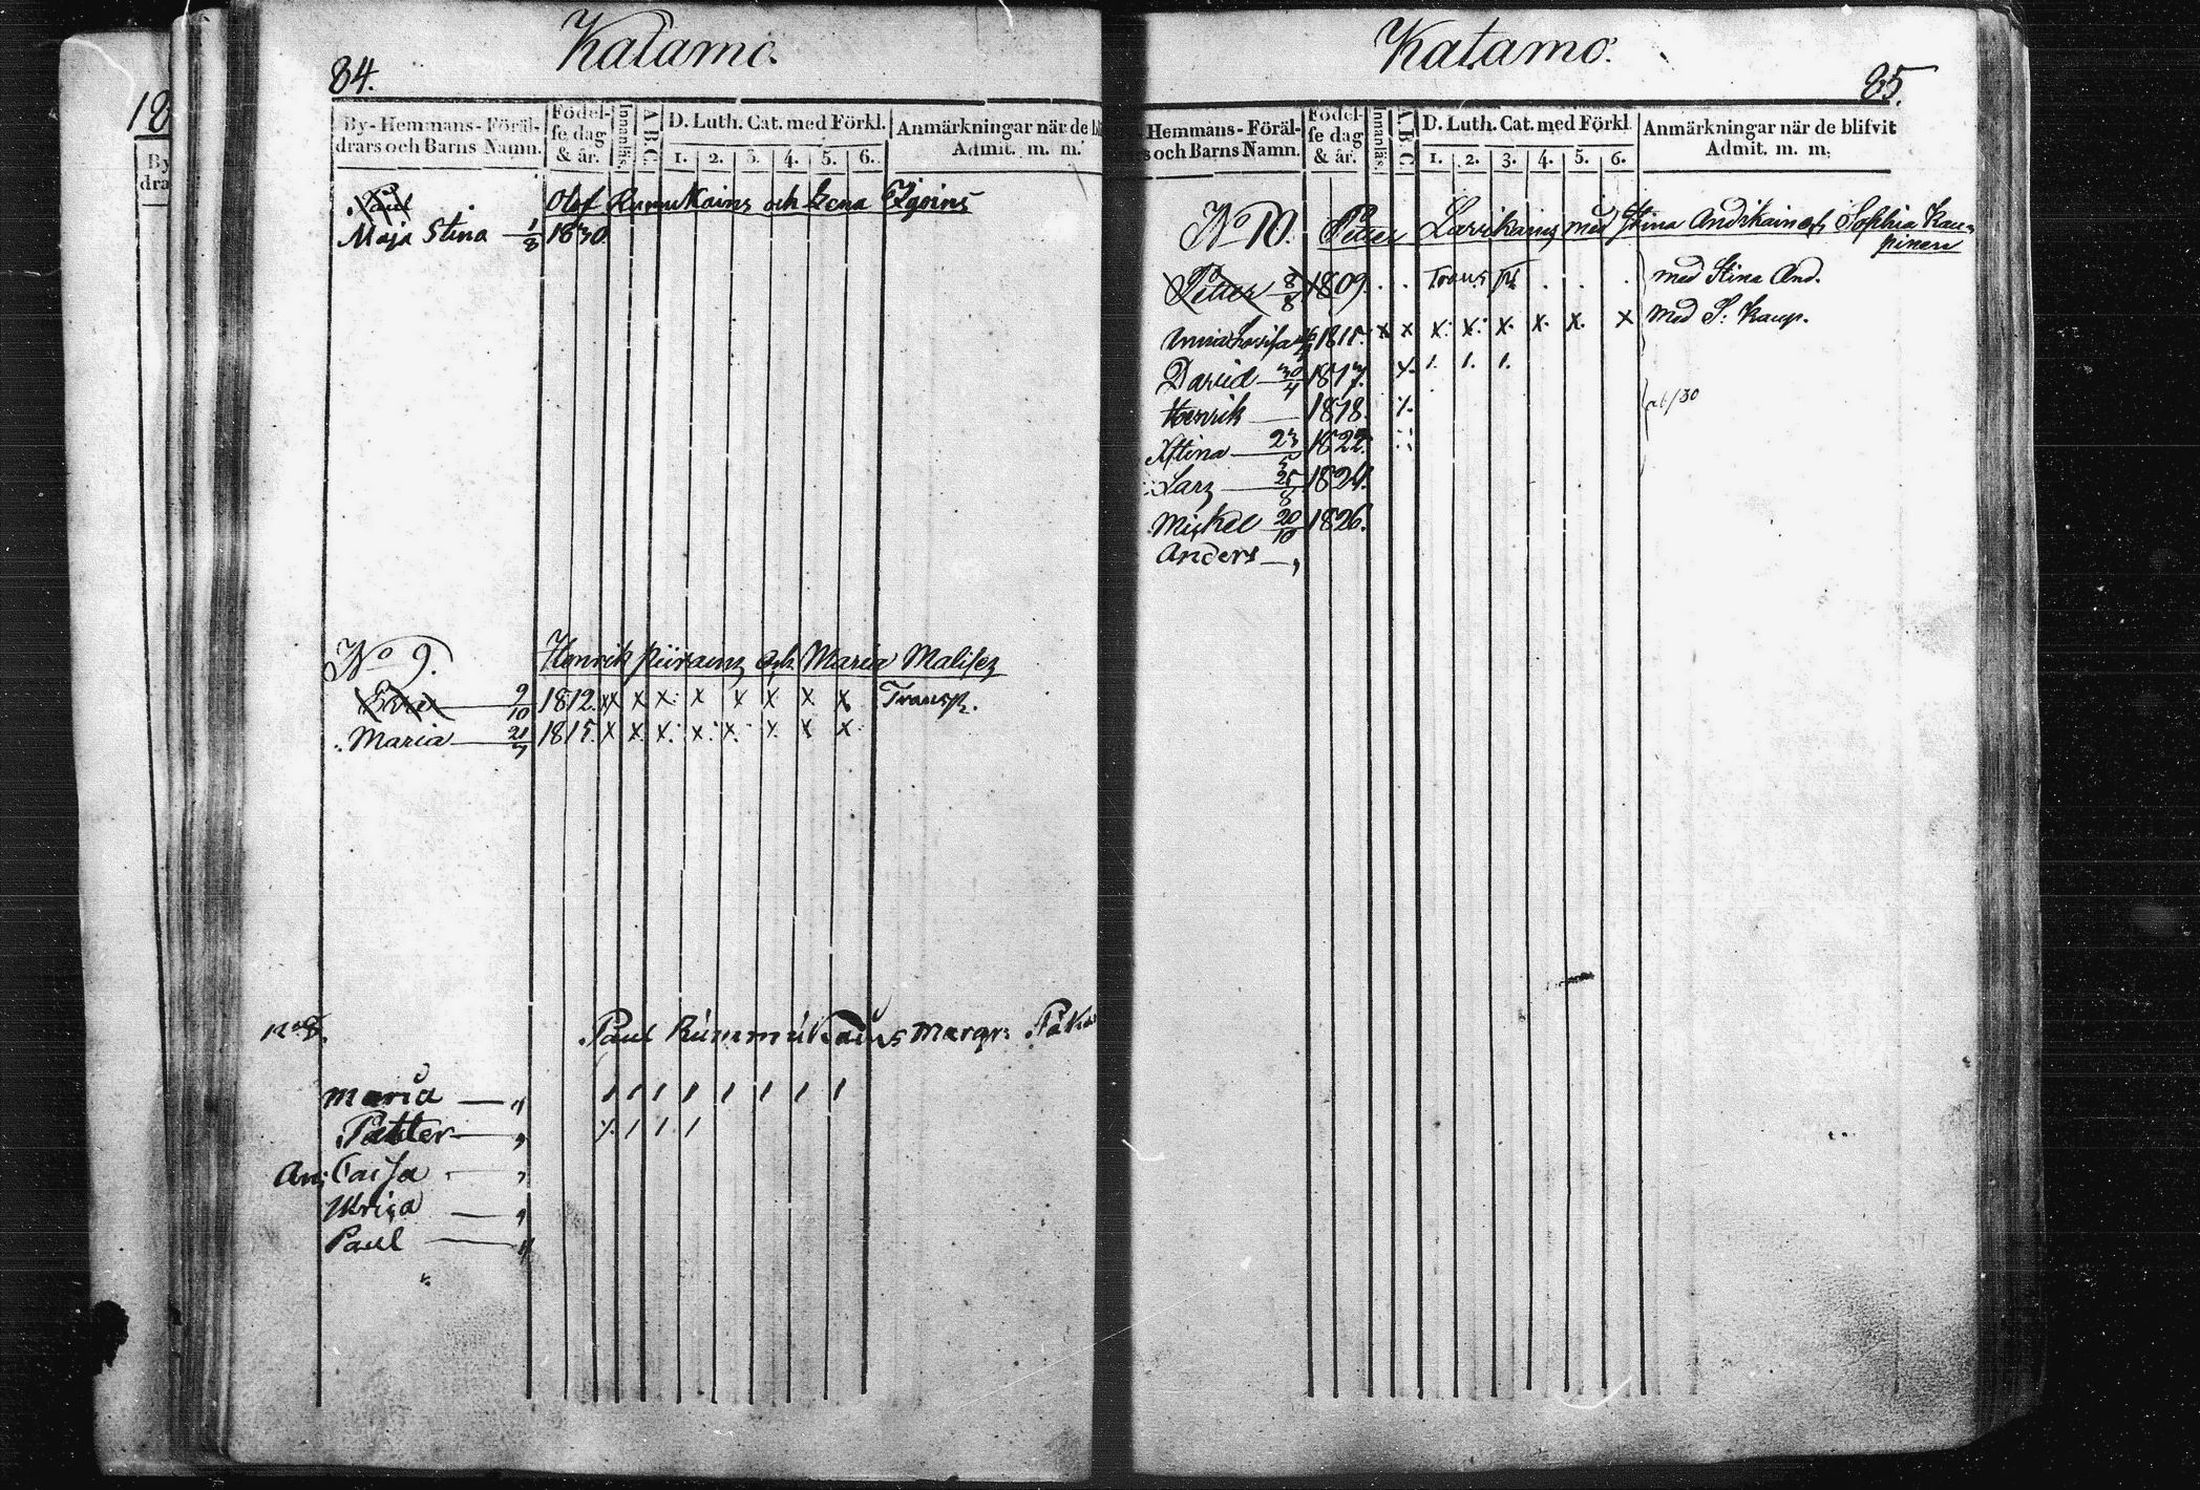 18
By
dra
84.
Katamo.
By-Hemmans-Föräl-
drars och Barns Namn.
Födel-
se dag
& år.
Innanläs.
A B C
D. Luth. Cat. med Förkl.
1. 2. 3. 4. 5. 6.
Anmärkningar när de bl
Admit. m. m.
Paul
Olof Rummukains och Lena
Maja Stina 1/8 1830
No 9.
Henrik Piirainz och Maria Malisez
9/10 1812. x x x x x x x x Transp.
Maria 21/7 1815. x x x x x x x x
Paul Rummukains Margr:
Maria
Petter
An: Caisa
Ulrica
Paul
Katamo.
85.
Hemmans-Föräl-
s och Barns Namn.
Födel-
se dag
& år.
Innanläs.
A B C
D. Luth. Cat. med Förkl.
1. 2. 3. 4. 5. 6.
Anmärkningar när de blifvit
Admit. m. m.
No 10. Petter med Stina Andikain och Sophia Kau=
pinen
Petter 8/8 1809. Transp. med Stina And.
Anna Lovisa 1815. x x x x x x x x med S: Kaup.
David 30/4 1817.
Henrik 1818.
Xstina 23/5 1822.
Lars 25/8 1824.
Mickel 20/10 1826.
Anders